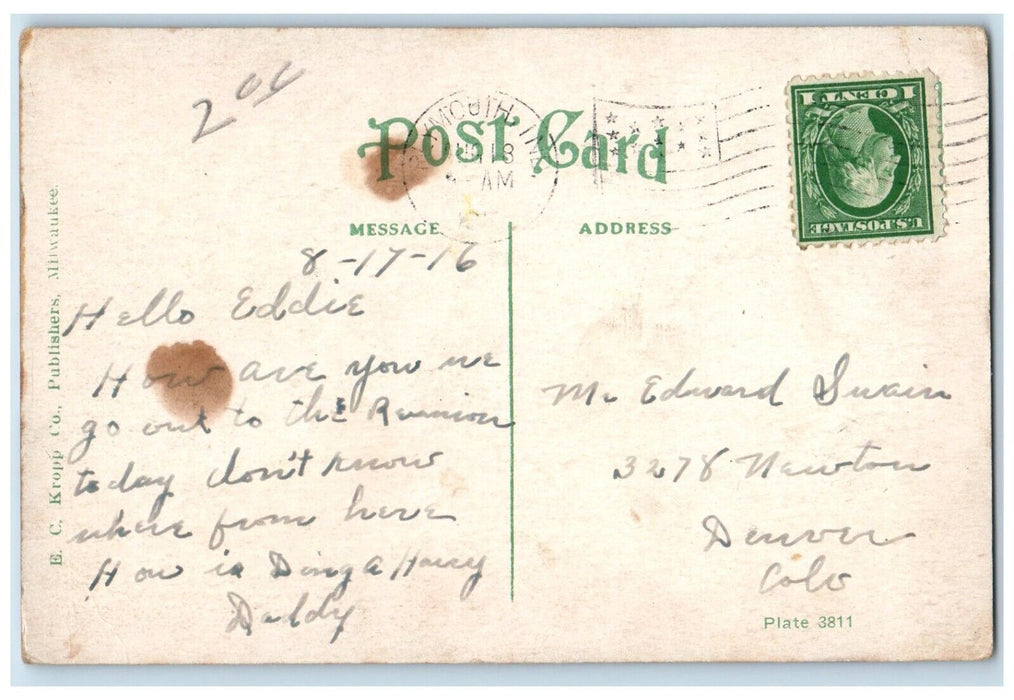 2 00
Post Card
MOUTH, IN
AUG 18
AM
1 CENT 1
U.S. POSTAGE
MESSAGE
ADDRESS
8-17-16
Hello Eddie
How are you we
go out to the Reunion
today don't know
where from here
How is Ding & Harry
Daddy
Mr Edward Swain
3278 Newton
Denver
Colo
Plate 3811
E. C. Kropp Co., Publishers, Milwaukee.